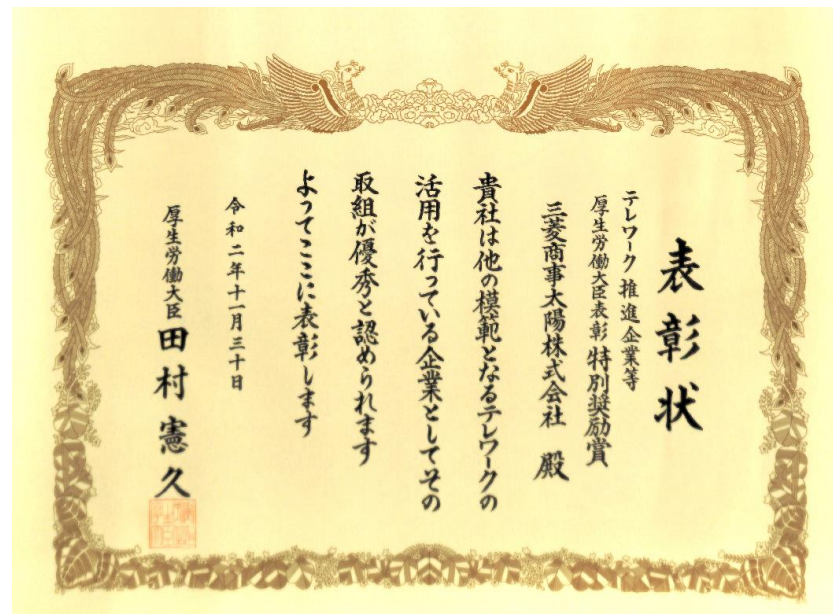 表彰状
テレワーク推進企業等
厚生労働大臣表彰 特別奨励賞
三菱商事太陽株式会社 殿
貴社は他の模範となるテレワークの
活用を行っている企業としてその
取組が優秀と認められます
よってここに表彰します
令和二年十一月三十日
厚生労働大臣 田村憲久